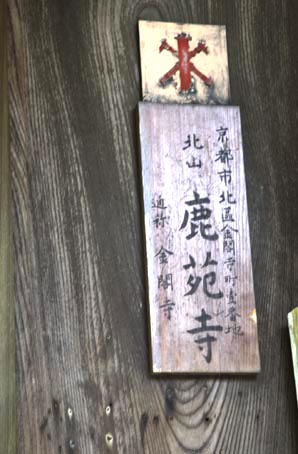 水
京都市北區金閣寺町壹番地
北山
鹿苑寺
通称 金閣寺